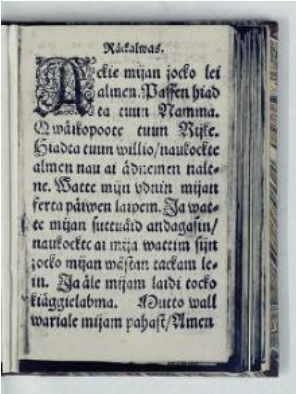 Räckalwas.
Ackie mijan jocko lei
almen. Paſſen hiad
ta tuun Namma.
Qwäikopoote tuun Rijke.
Hiadta tuun willio/ naukockte
almen nau ai ädnemen nale-
ne. Watte mijn vdnin mijan
ferta päiwen laipem. Ja wat-
te mijan ſuttuãid andagaſin/
naukockte ai mija wattim ſijn
jocko mijan wäſtan tackam le-
in. Ja äle mijam laidi tocko
kiäggielabma. Mutto wall
wariale mijam pahaſt/ Amen